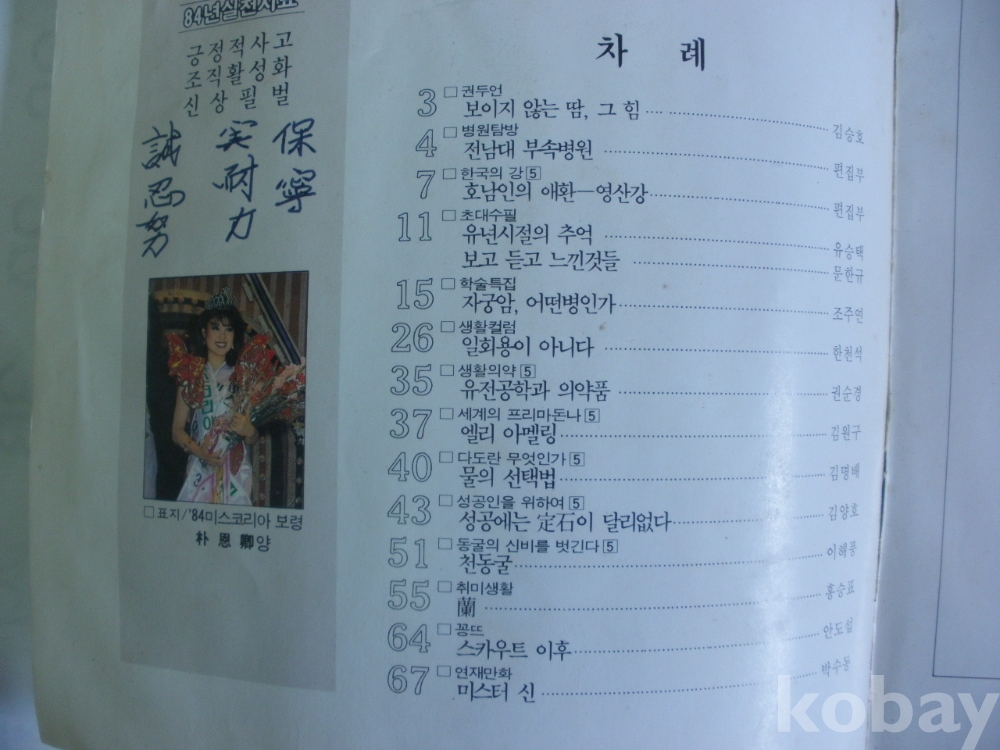 84년실천지표
긍정적사고
조직활성화
신상필벌
保寧
実耐力
誠忍努
□ 표지/'84미스코리아 보령
朴恩卿양
차 례
3 □ 권두언
보이지 않는 땀, 그 힘 김승호
4 □ 병원탐방
전남대 부속병원 편집부
7 □ 한국의 강 5
호남인의 애환—영산강 편집부
11 □ 초대수필
유년시절의 추억 유승택
보고 듣고 느낀것들 문한규
15 □ 학술특집
자궁암, 어떤병인가 조주연
26 □ 생활컬럼
일회용이 아니다 한천석
35 □ 생활의약 5
유전공학과 의약품 권순경
37 □ 세계의 프리마돈나 5
엘리 아멜링 김원구
40 □ 다도란 무엇인가 5
물의 선택법 김명배
43 □ 성공인을 위하여 5
성공에는 定石이 달리없다 김양호
51 □ 동굴의 신비를 벗긴다 5
천동굴 이해풍
55 □ 취미생활
蘭 홍승표
64 □ 꽁뜨
스카우트 이후 안도섭
67 □ 연재만화
미스터 신 박수동
kobay